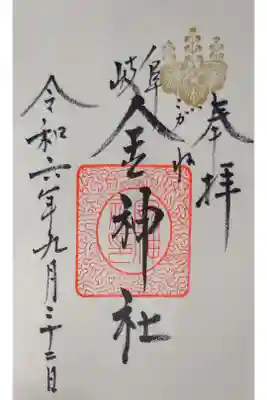 奉拝
岐阜
こがね
金神社
令和六年九月二十二日